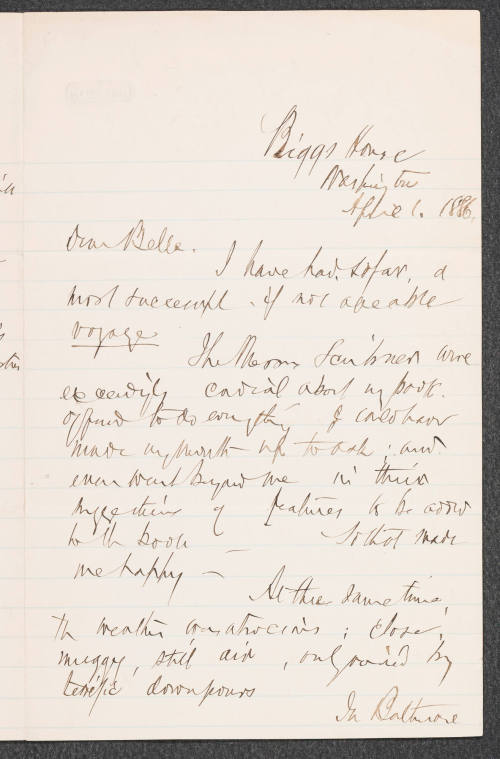 Riggs House
Washington
April 1. 1886.
Dear Belle.
I have had, so far, a
most successful - if not agreeable
voyage
The Messrs Scribners were
exceedingly cordial about my book.
offered to do everything I could have
made my mouth up to ask; and
even went beyond me in their
suggestions of features to be added
to the book — So that made
me happy —
At the same time,
the weather was atrocious; close,
muggy, still air, only varied by
terrific downpours
In Baltimore